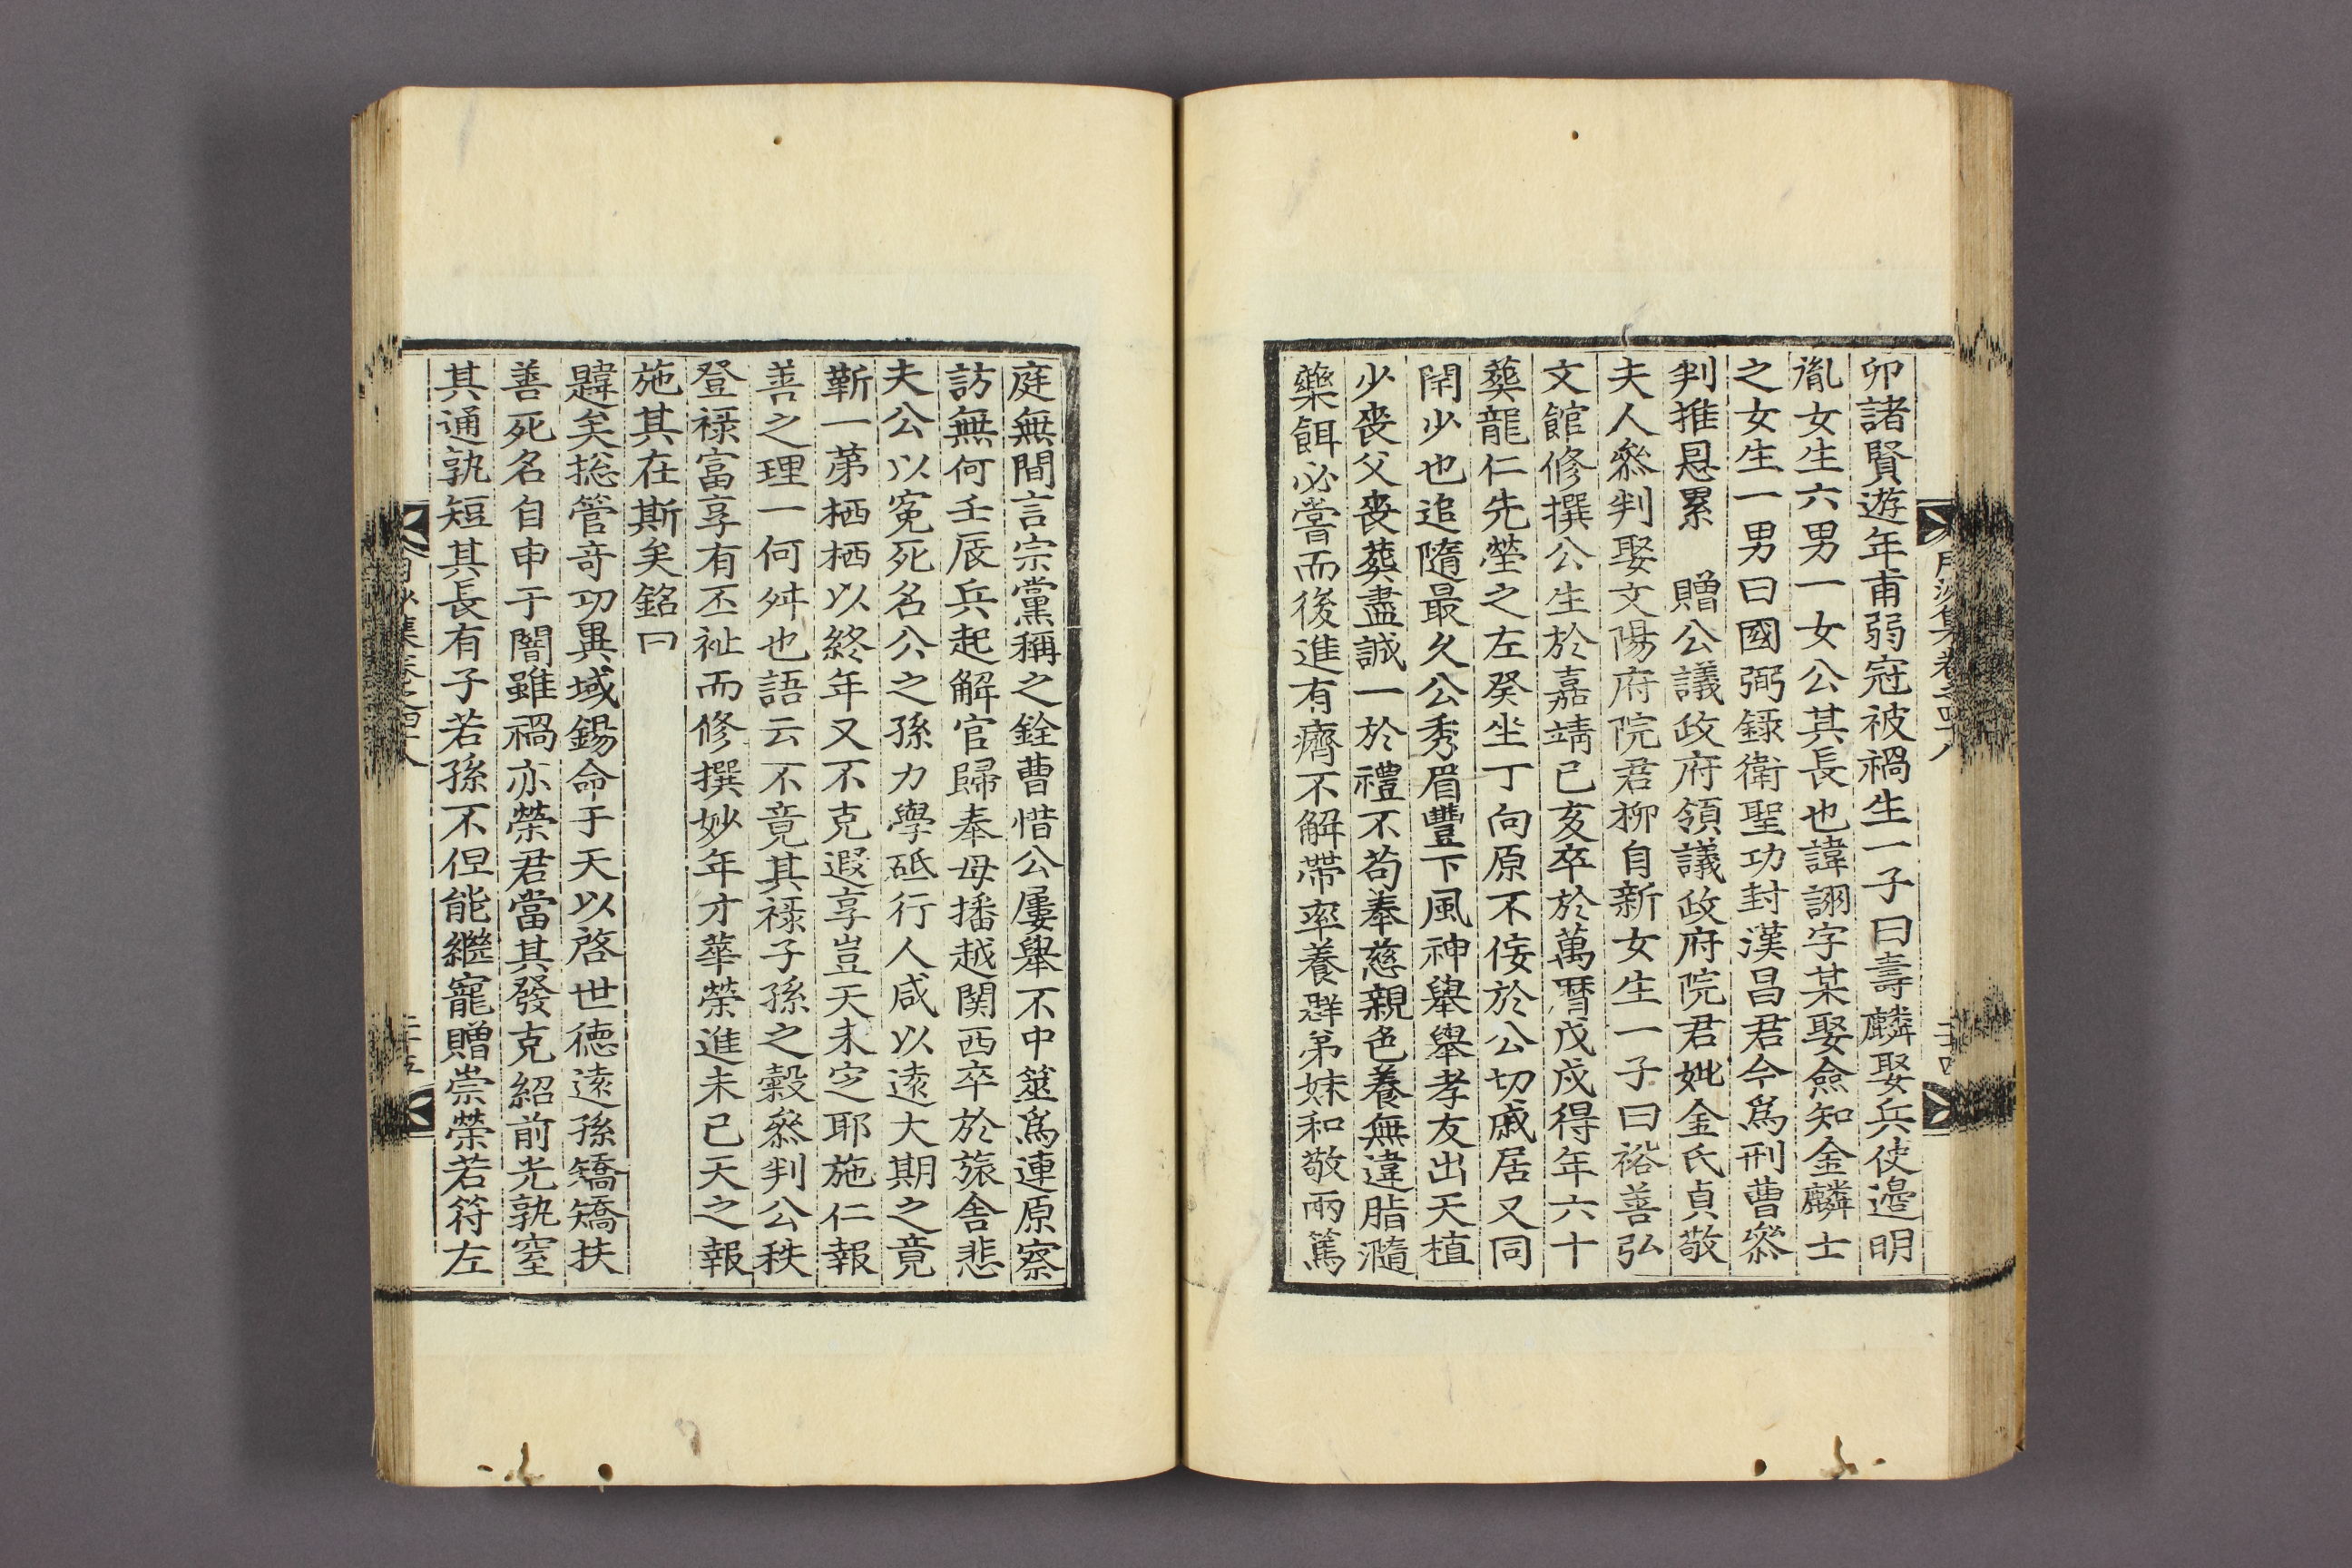 卯諸賢遊年甫弱冠被禍生一子曰壽麟娶兵使邊明
胤女生六男一女公其長也諱詡字某娶僉知金麟士
之女生一男曰國弼錄衛聖功封漢昌君今爲刑曹叅
判推恩累 贈公議政府領議政府院君妣金氏貞敬
夫人叅判娶文陽府院君柳自新女生一子曰裕善弘
文館修撰公生於嘉靖己亥卒於萬曆戊戌得年六十
葬龍仁先塋之左癸坐丁向原不佞於公切戚居又同
閈少也追隨最久公秀眉豐下風神擧擧孝友出天植
少喪父喪葬盡誠一於禮不苟奉慈親色養無違脂瀡
藥餌必嘗而後進有癠不解帶率養群弟妹和敬兩篤
庭無間言宗黨稱之銓曹惜公屢擧不中筮爲連原察
訪無何壬辰兵起解官歸奉母播越関西卒於旅舍悲
夫公以寃死名公之孫力學砥行人咸以遠大期之竟
靳一第栖栖以終年又不克遐享豈天未定耶施仁報
善之理一何舛也語云不竟其祿子孫之糓叅判公秩
登祿富享有丕祉而修撰妙年才華榮進未已天之報
施其在斯矣銘曰
韙矣摠管奇功異域錫命于天以啓世德遠孫矯矯扶
善死名自申于闇雖禍亦榮君當其發克紹前光孰窒
其通孰短其長有子若孫不但能繼寵贈崇榮若符左
月沙集卷之四十八
二十四
月沙集卷之四十八
二十五